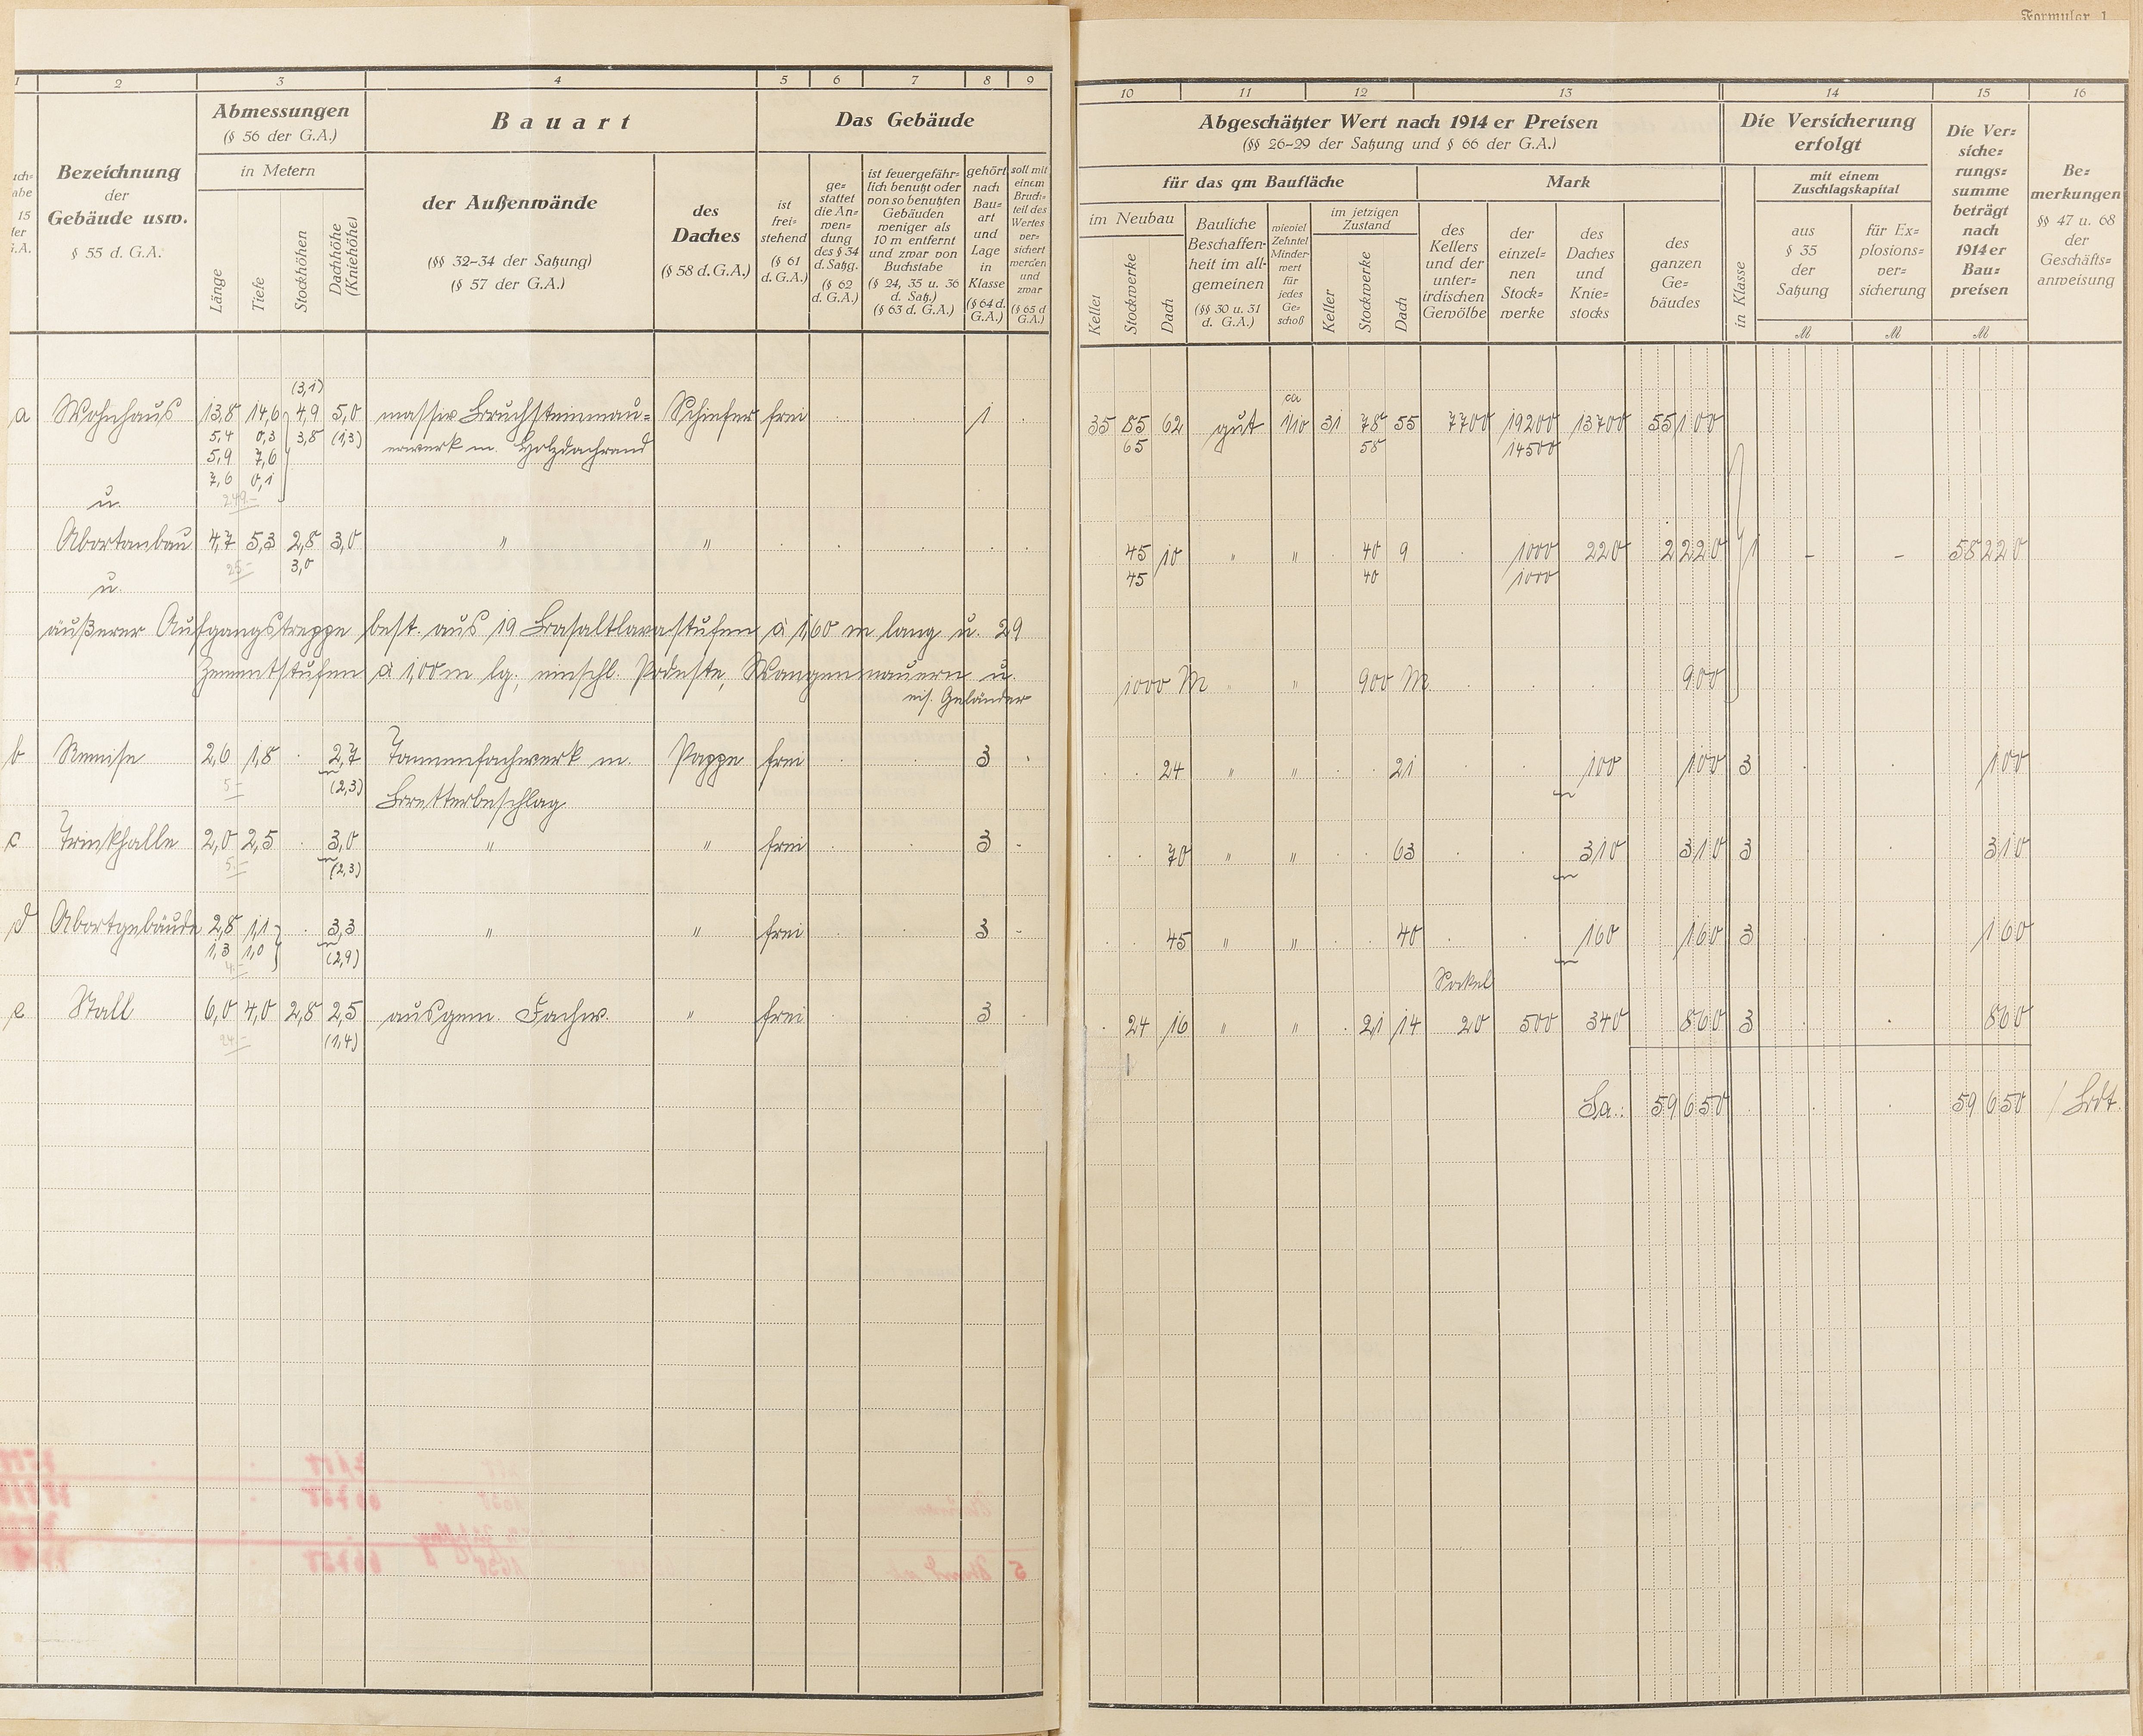 Formular 1
1 2 3 4 5 6 7 8 9 10 11 12 13 14 15 16
Bezeichnung
der
Gebäude usw.
§ 55 d. G.A.
Abmessungen
(§ 56 der G.A.)
in Metern
Länge
Tiefe
Stockhöhen
Dachhöhe
(Kniehöhe)
Bauart
der Außenwände
(§§ 32–34 der Satzung)
(§ 57 der G.A.)
des
Daches
(§ 58 d.G.A.)
Das Gebäude
ist
frei=
stehend
(§ 61
d. G.A.)
ge=
stattet
die An=
wen=
dung
des § 34
d. Satzg.
(§ 62
d. G.A.)
ist feuergefähr=
lich benutzt oder
von so benutzten
Gebäuden
weniger als
10 m entfernt
und zwar von
Buchstabe
(§ 24, 35 u. 36
d. Satz.)
(§ 63 d. G.A.)
gehört
nach
Bau=
art
und
Lage
in
Klasse
(§ 64 d.
G.A.)
soll mit
einem
Bruch=
teil des
Wertes
ver=
sichert
werden
und
zwar
(§ 65 d
G.A.)
Abgeschätzter Wert nach 1914er Preisen
(§§ 26–29 der Satzung und § 66 der G.A.)
für das qm Baufläche
im Neubau
Keller
Stockwerke
Dach
Bauliche
Beschaffen=
heit im all=
gemeinen
(§§ 30 u. 31
d. G.A.)
wieviel
Zehntel
Minder=
wert
für
jedes
Ge=
schoß
im jetzigen
Zustand
Keller
Stockwerke
Dach
Mark
des
Kellers
und der
unter=
irdischen
Gewölbe
der
einzel=
nen
Stock=
werke
des
Daches
und
Knie=
stocks
des
ganzen
Ge=
bäudes
Die Versicherung
erfolgt
in Klasse
mit einem
Zuschlagskapital
aus
§ 35
der
Satzung
für Ex=
plosions=
ver=
sicherung
M M M
Die Ver=
siche=
rungs=
summe
beträgt
nach
1914er
Bau=
preisen
Be=
merkungen
§§ 47 u. 68
der
Geschäfts=
anweisung
(3,1) ca
a Wohnhaus 13,8 14,6 4,9 5,0 massiv Bruchsteinmau= Schiefer frei 1 35 85 62 gut 1/10 31 78 55 7700 19200 13700 55100
5,4 0,3 3,8 (1,3) erwerk m. Holzdachrand 65 58 14500
5,9 7,6
7,6 0,1
u. 249.-
Abortanbau 4,7 5,3 2,8 3,0 " " 45 10 " " 40 9 1000 220 2220 1 - - 58220
25.- 3,0 45 40 1000
u.
äußerer Aufgangstreppe best. aus 19 Basaltlavastufen à 1,60 m lang u. 29
Zementstufen à 1,00 m lg; einschl. Podeste, Wangenmauern u. 1000 M " " 900 M 900
eis. Geländer
b Remise 2,6 1,8 2,7 Tannenfachwerk m. Pappe frei 3 24 " " 21 100 100 3 100
5.- (2,3) Bretterbeschlag
c Trinkhalle 2,0 2,5 3,0 " " frei 3 70 " " 63 310 310 3 310
5.- (2,3)
d Abortgebäude 2,8 1,1 3,3 " " frei 3 45 " " 40 160 160 3 160
1,3 1,0 (2,9)
4.- Sockel
e Stall 6,0 4,0 2,8 2,5 ausgem. Fachw. " frei 3 24 16 " " 21 14 20 500 340 860 3 860
24.- (1,4)
Sa.: 59650 59650